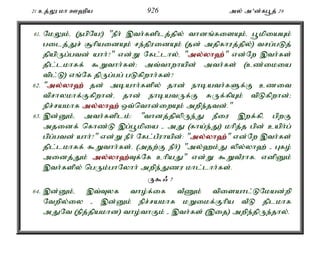 21 உத்லு மா ஊஹிய 926 அல் அ'ன்கபூத் 29
61. மேலும், (நபியே) "நீர் இவர்களிடத்தில் வானங்களையும், பூமியையும்
படைத்துச் சூரியனையும் சந்திரனையும் (தன் அதிகாரத்தில்) வசப்படுத்
தியிருப்பவன் யார்?" என்று கேட்டால், "அல்லாஹ்" என்றே இவர்கள்
திட்டமாகக் கூறுவார்கள்; அவ்வாறாயின் அவர்கள் (உண்மையை
விட்டு) எங்கே திருப்பப் படுகிறார்கள்?
62. "அல்லாஹ் தன் அடியார்களில் தான் நாடியவர்களுக்கு உணவை
விசாலமாக்குகிறான், தான் நாடியவருக்கு சுருக்கியும் விடுகிறான்;
நிச்சயமாக அல்லாஹ் ஒவ்வொன்றையும் அறிந்தவன்."
63. இன்னும், அவர்களிடம்: "வானத்திலிருந்து நீரை இறக்கி, பிறகு
அதனைக் கொண்டு இப்பூமியை - அது (காய்ந்து) மரித்த பின் உயிர்ப்
பிப்பவன் யார்?" என்று நீர் கேட்பீராயின்: "அல்லாஹ்" என்றே இவர்கள்
திட்டமாகக் கூறுவார்கள். (அதற்கு நீர்) "அல்ஹம்து லில்லாஹ் - புகழ்
அனைத்தும் அல்லாஹ்வுக்கே உரியது" என்று கூறுவீராக. எனினும்
இவர்களில் பெரும்பாலோர் அறிந்துணர மாட்டார்கள்.
ருகூஃ 7
64. இன்னும், இவ்வுலக வாழ்க்கை வீணும் விளையாட்டுமேயன்றி
வேறில்லை - இன்னும் நிச்சயமாக மறுமைக்குரிய வீடு திடமாக
அதுவே (நித்தியமான) வாழ்வாகும் - இவர்கள் (இதை) அறிந்திருந்தால்.